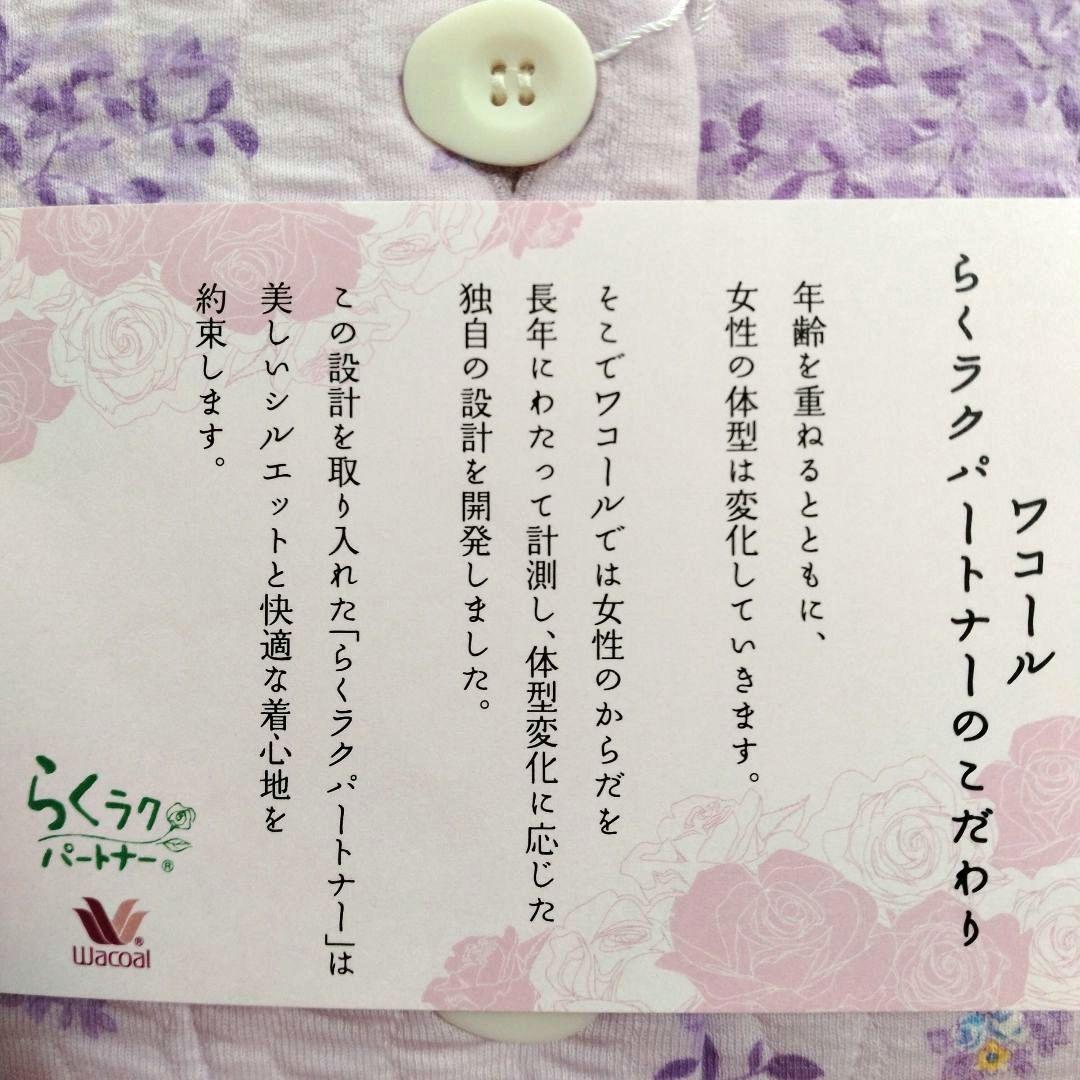 ワコール
らくラクパートナーのこだわり
年齢を重ねるとともに、
女性の体型は変化していきます。
そこでワコールでは女性のからだを
長年にわたって計測し、体型変化に応じた
独自の設計を開発しました。
この設計を取り入れた「らくラクパートナー」は
美しいシルエットと快適な着心地を
約束します。
らくラク
パートナー®
Wacoal®